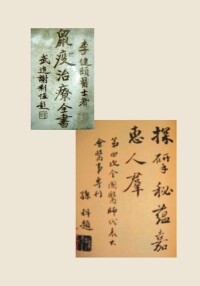 李健頤醫士著
鼠疫治療全書
武進謝利恒題
探研秘蘊嘉
惠人羣
第四次全國醫師代表大
會醫事專刊
孫科題